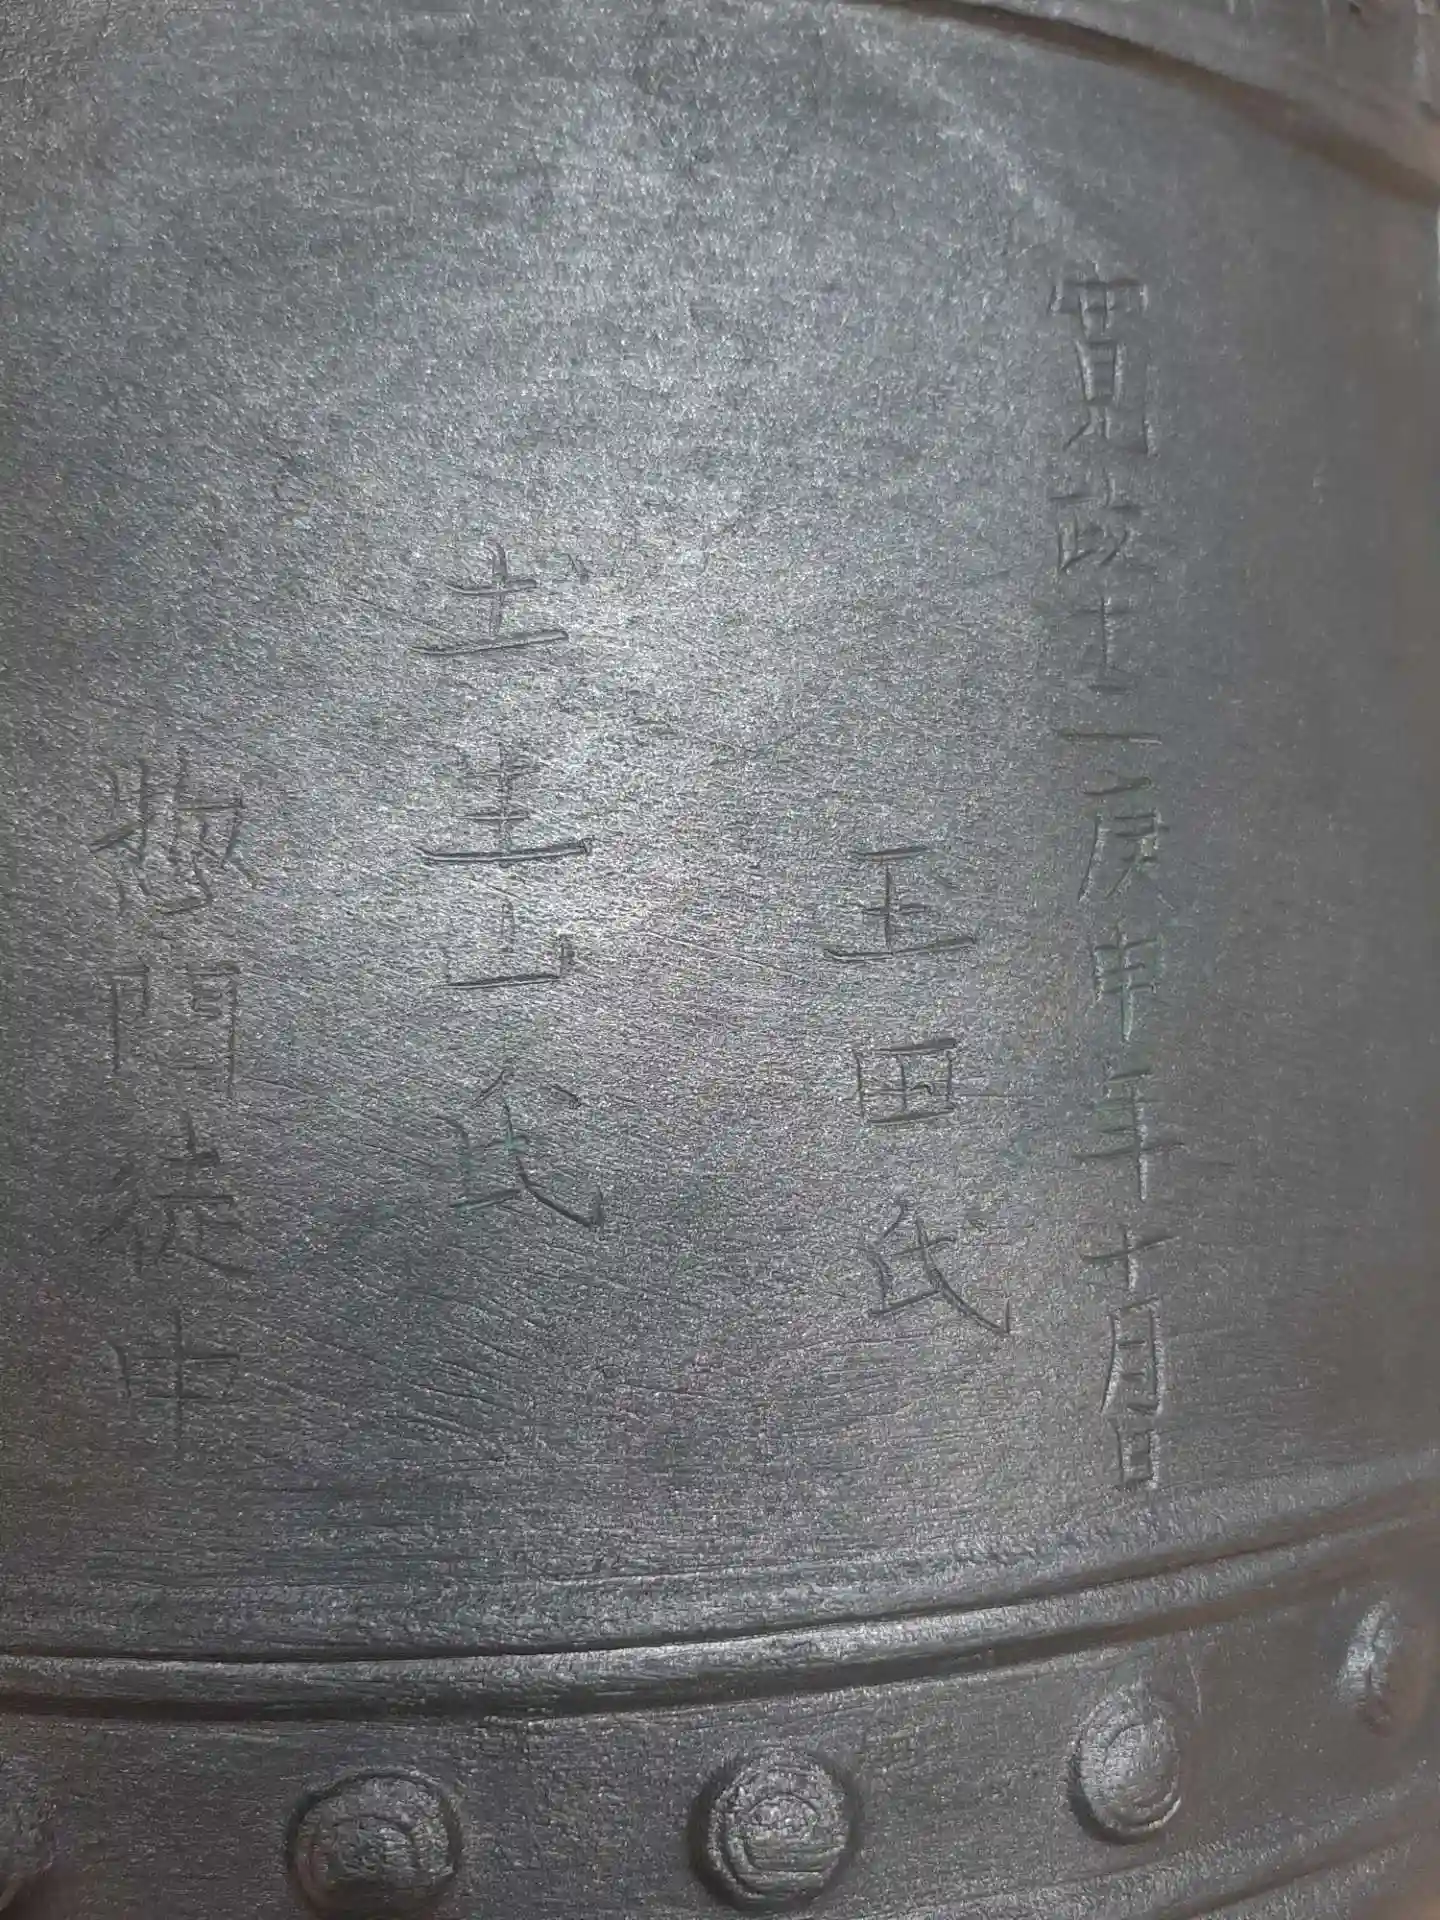 寛政十二庚申年十月日
玉田氏
土生山氏
惣門徒中